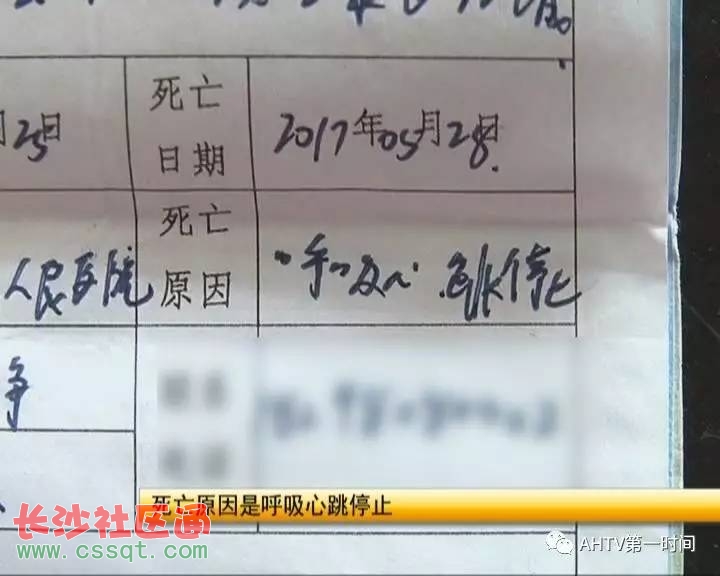 月25日
死亡
日期
2017年05月28日.
人民医院
死亡
原因
呼吸心跳停止
争
死亡原因是呼吸心跳停止
长沙社区通
www.cssqt.com
AHTV第一时间